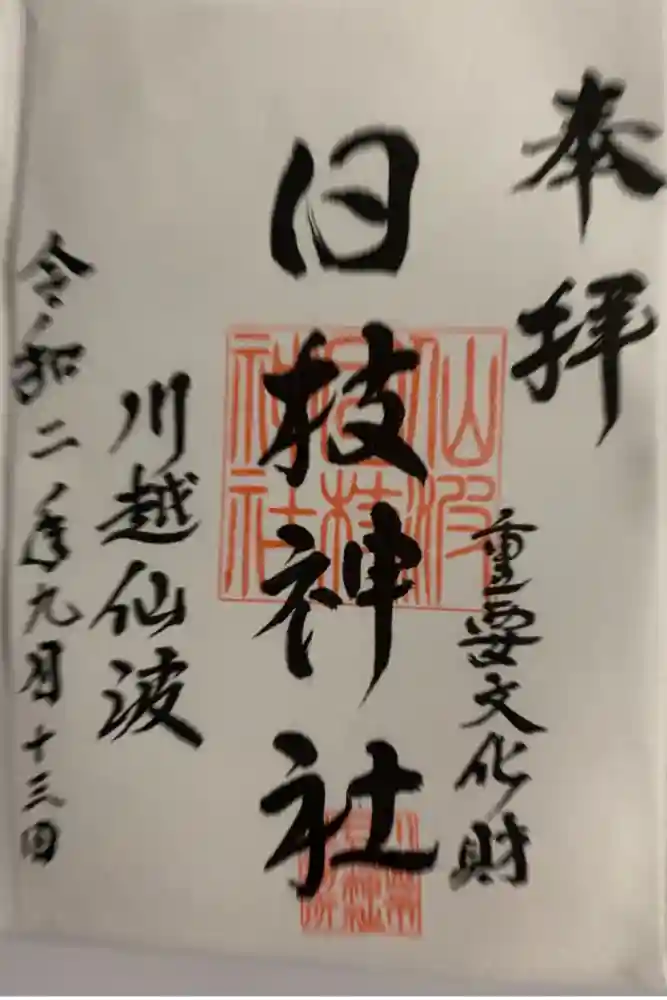 奉拝
重要文化財
日枝神社
仙波
日枝
神社
川越仙波
令和二年九月十三日